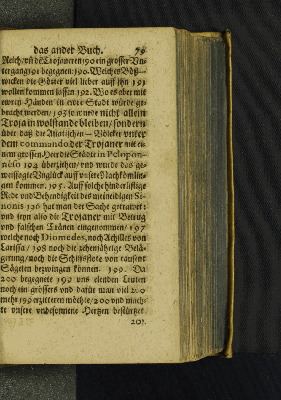 das ander Buch. 79
Reich/ und de Trojanern 190 ein grosser Un-
tergang 191 begegnen: 190. Welches Böß-
wicken die Götter viel lieber auff ihn 191
wollen kommen lassen 192. Wo es aber mit
ewren Händen in ewre Stadt würde ge-
bracht werden/ 193 so wurde nicht allein
Troja in wolstande bleiben/ sondern
über daß die Asiatischen Völcker unter
dem commando der Trojaner mit ei-
nem grossen Heer die Städte in Pelopon-
neso 194 überziehen/ und wurde das ge-
weissagte Unglück auff unsere Nachkömlin-
gen kommen. 195. Auff solche hinderlistige
Rede und Behendigkeit des meineidigen Si-
nonis 196 hat man der Sache getrawet:
und seyn also die Trojaner mit Betrug
und falschen Tränen eingenommen/ 197
welche noch Diomedes, noch Achilles von
Larissa/ 198 noch die zehenjährige Belä-
gerung/ noch die Schiffsflote von tausent
Sägeln bezwingen können. 199. Da
200 begegnete 199 uns elenden Leuten
noch ein grössers und dafür man viel
mehr 199 erzitteren möchte/ 200 und mach-
te unsere unbesonnene Hertzen bestürtzet
201.